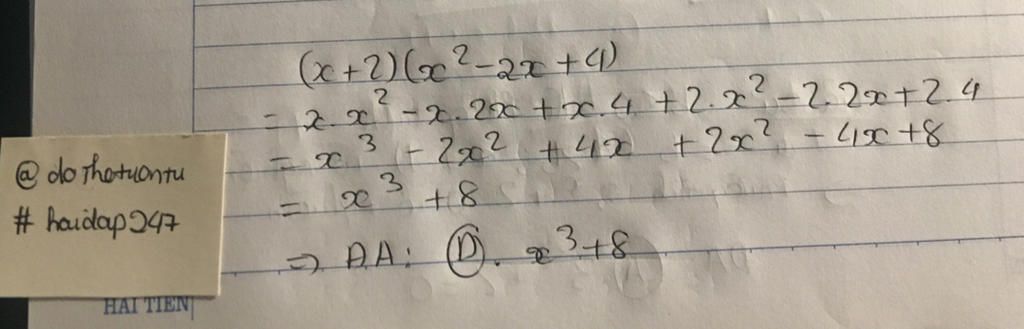 (x+2)(x²-2x+4)
= x.x²-x.2x+x.4+2.x²-2.2x+2.4
= x³-2x²+4x+2x²-4x+8
= x³+8
⇒ ĐA: Ⓓ. x³+8
@dothotuontu
#hoidap247
HẢI TIẾN